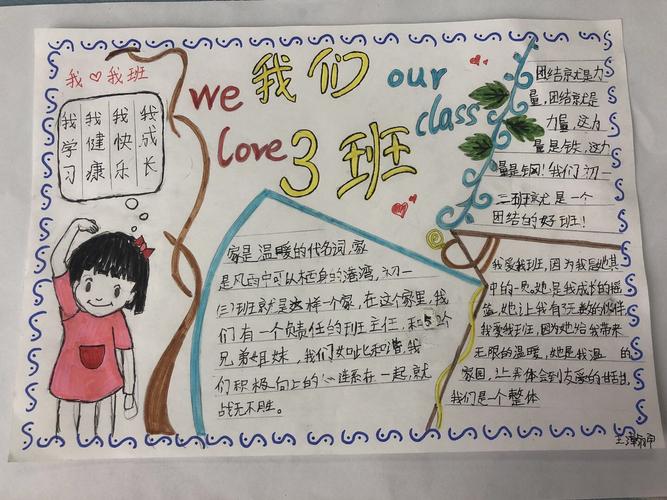 我♡我班
我成长
我快乐
我健康
我学习
we 我们 our
love 3班 class
团结就是力
量,团结就是
力量,这力
量是铁,这力
量是钢!我们初一
三班就是一个
团结的好班!
家是温暖的代名词,家
是风雨中可以栖身的港湾,初一
(三)班就是这样一个家,在这个家里,我
们有一个负责任的班主任,和52个
兄弟姐妹,我们如此和谐,我
们积极向上的心连系在一起,就
战无不胜。
我爱我班,因为我是她其
中的一 她是我成长的摇
篮,她让我有了无数的伙伴
我爱我班,因为她给我带来
无限的温暖,她是我温 的
家园,让我体会到友爱的甘甜,
我们是一个整体
王